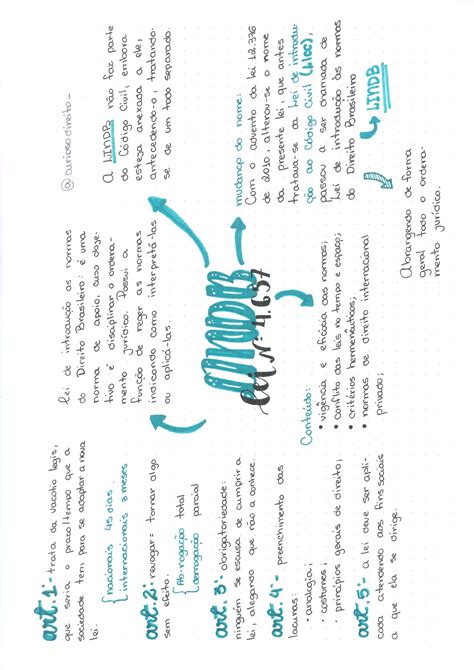 @curiosodireito_
Lei de introdução as normas
do Direito Brasileiro: é uma
norma de apoio, cujo obje-
tivo é disciplinar o ordena-
mento jurídico. Possui a
função de reger as normas
indicando como interpretá-las
ou aplicá-las.
A LINDB não faz parte
do Código Civil, embora
esteja anexada a ele,
antecedendo-o, tratando-
se de um todo separado.
LINDB
Lei Nº 4.657
mudança do nome:
Com o advento da lei 12.376
de 2010, alterou-se o nome
da presente lei, que antes
tratava-se da Lei de introdu-
ção ao Código Civil (LICC),
passou a ser chamada de
Lei de introdução às normas
do Direito Brasileiro
LINDB
Abrangendo de forma
geral todo o ordena-
mento jurídico.
Conteúdo:
• vigência e eficácia das normas;
• conflito das leis no tempo e espaço;
• critérios hermenêuticos;
• normas de direito internacional
privado;
art. 1º- trata da vacatio legis,
que seria o prazo/tempo que a
sociedade tem para se adaptar a nova
lei.
nacionais 45 dias
internacionais 3 meses
art. 2º- revogar= tornar algo
sem efeito.
Ab-rogação total
derrogação parcial
art. 3º- obrigatoriedade:
ninguém se escusa de cumprir a
lei, alegando que não a conhece.
art. 4º- preenchimento das
lacunas:
• analogia;
• costumes;
• princípios gerais de direito;
art. 5º- a lei deve ser apli-
cada atendendo aos fins sociais
a que ela se dirige.